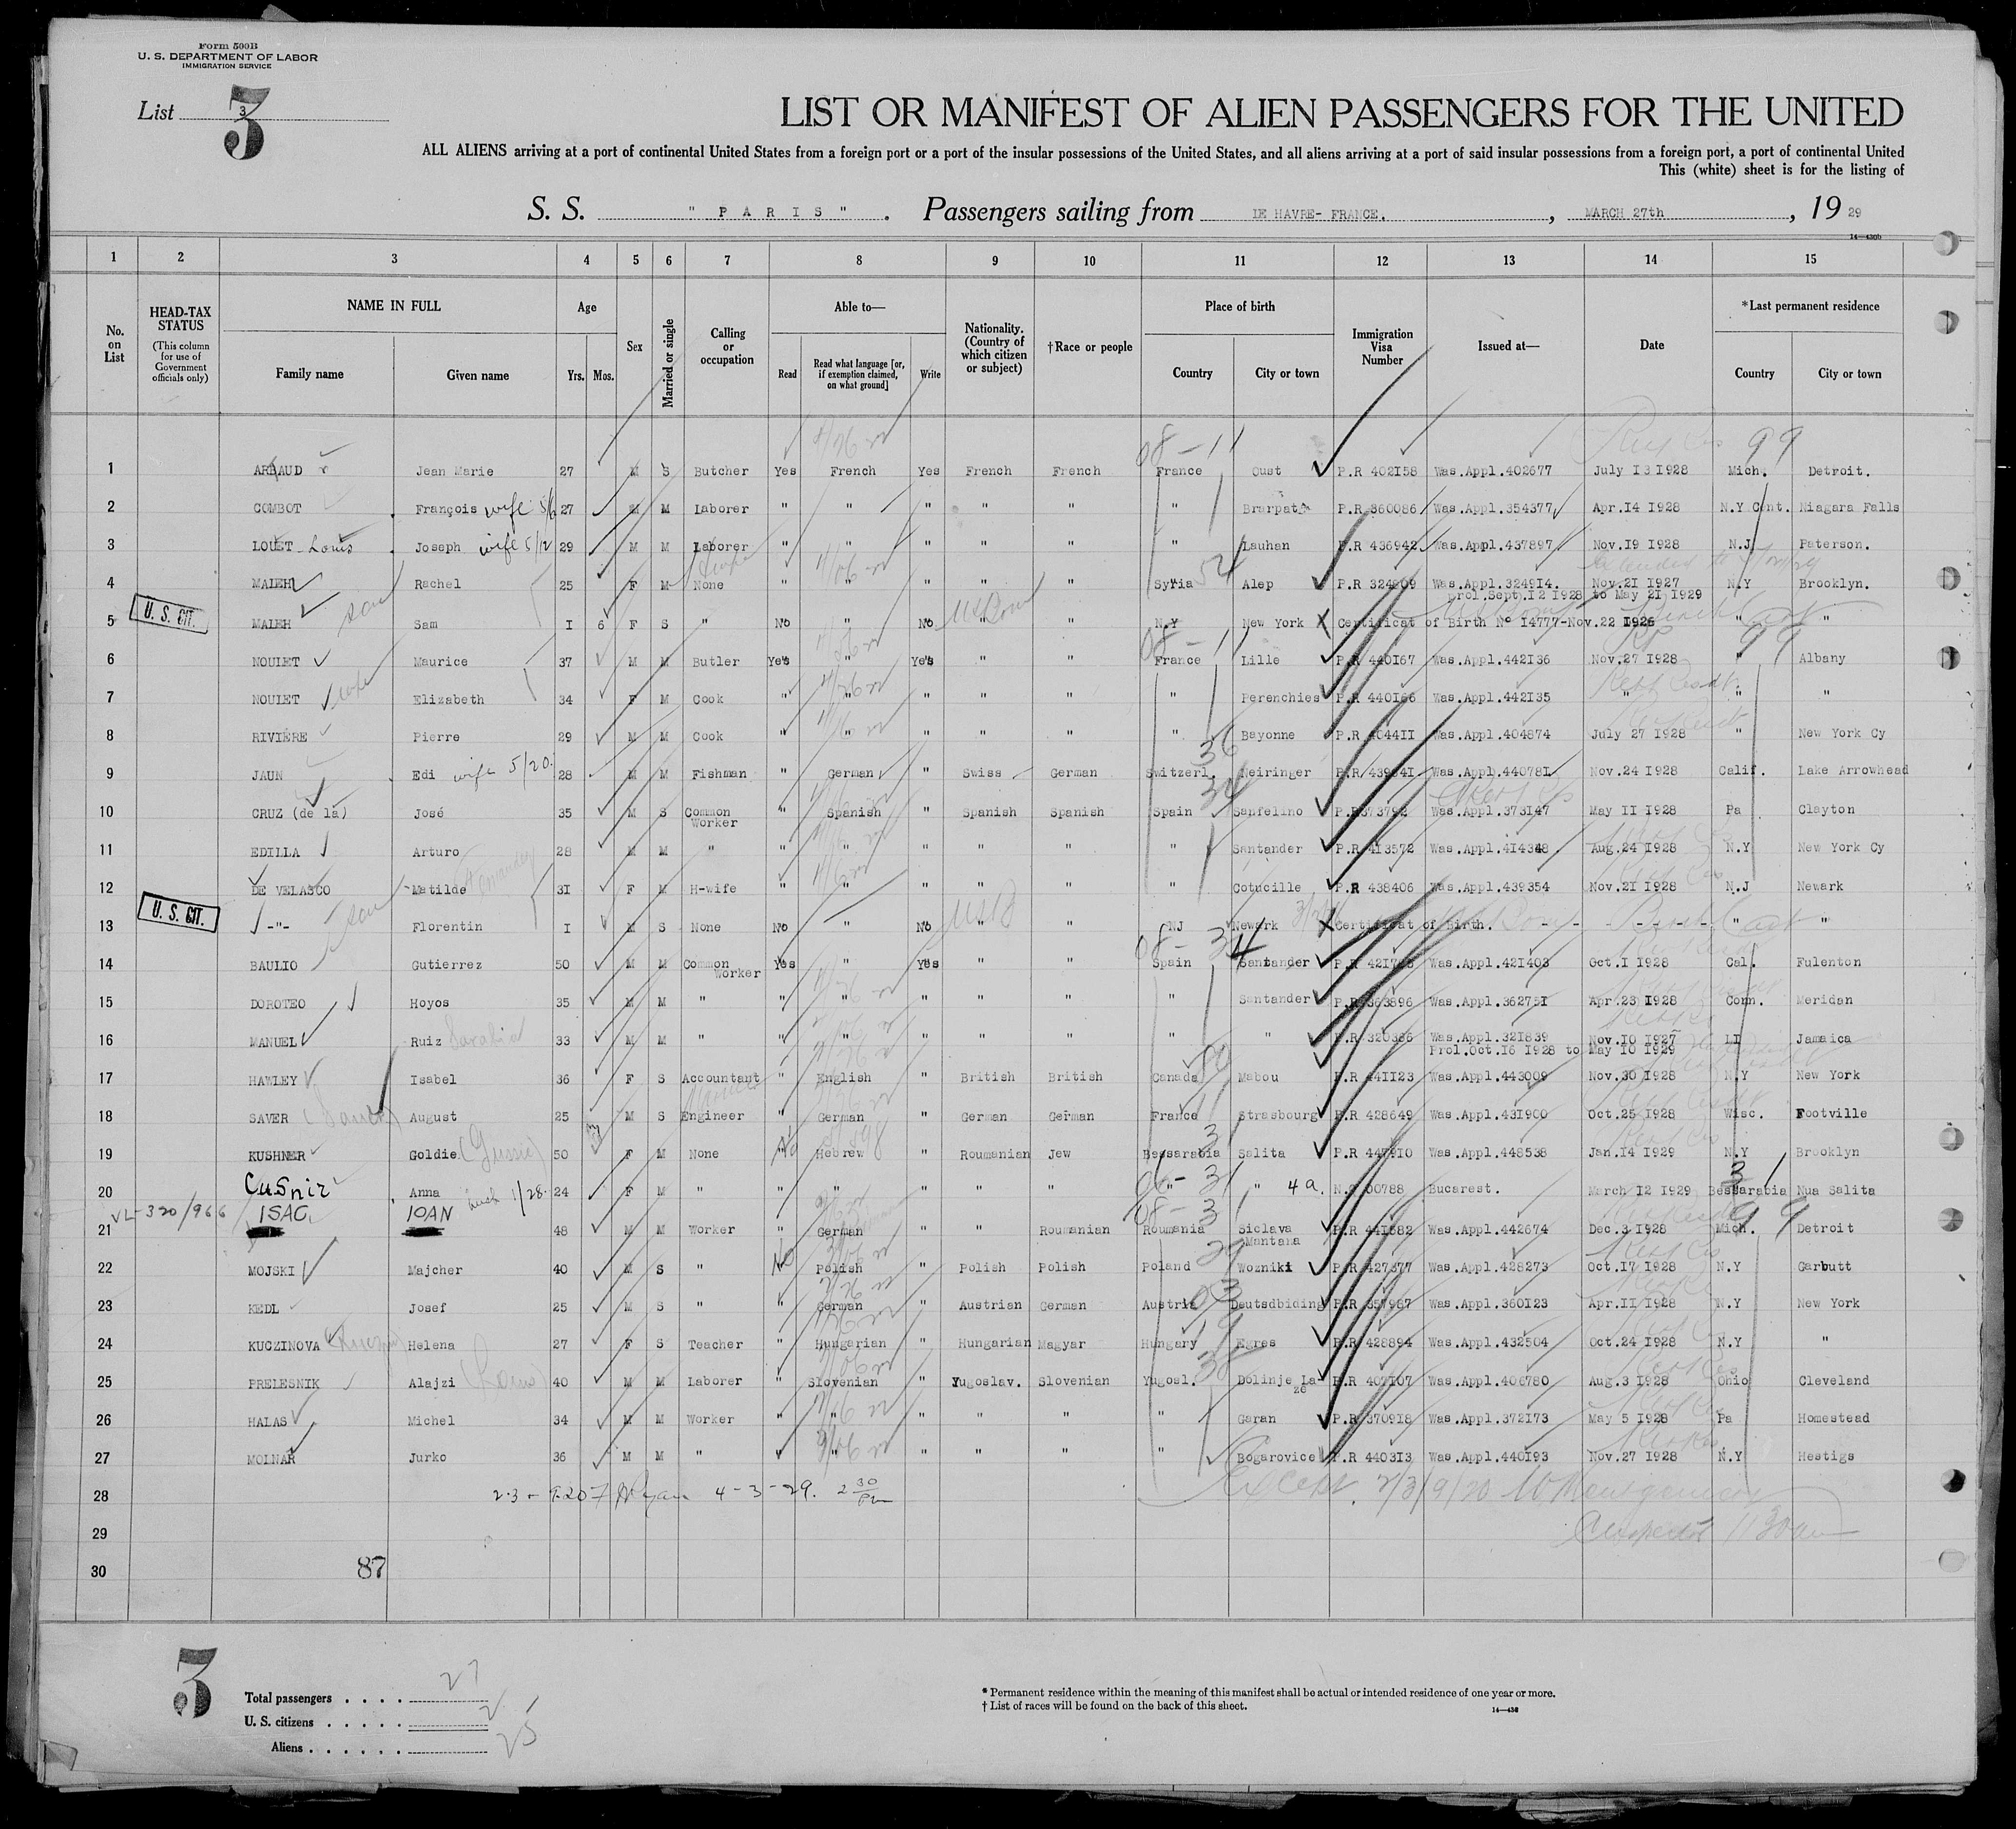 Form 500B
U. S. DEPARTMENT OF LABOR
IMMIGRATION SERVICE
List 3
3
LIST OR MANIFEST OF ALIEN PASSENGERS FOR THE UNITED
ALL ALIENS arriving at a port of continental United States from a foreign port or a port of the insular possessions of the United States, and all aliens arriving at a port of said insular possessions from a foreign port, a port of continental United
This (white) sheet is for the listing of
S. S. " P A R I S " . Passengers sailing from LE HAVRE- FRANCE. , MARCH 27th , 19 29
14—430b
1 2 3 4 5 6 7 8 9 10 11 12 13 14 15
No. on List
HEAD-TAX STATUS
(This column for use of Government officials only)
NAME IN FULL
Family name Given name
Age
Yrs. Mos.
Sex
Married or single
Calling or occupation
Able to—
Read Read what language [or, if exemption claimed, on what ground] Write
Nationality. (Country of which citizen or subject)
†Race or people
Place of birth
Country City or town
Immigration Visa Number
Issued at—
Date
*Last permanent residence
Country City or town
08-11 99
1 ARBAUD Jean Marie 27 M S Butcher Yes French Yes French French France Oust P.R 402158 Was.Appl.402677 July 13 1928 Mich. Detroit.
2 COMBOT François wife 5/6 27 M M Laborer " " " " " " P.R 360086 Was.Appl.354377 Apr.14 1928 N.Y Cent. Niagara Falls
3 LOUET - Louis Joseph wife 5/12 29 M M Laborer " " " " " " Lauhan P.R 436942 Was.Appl.437897 Nov.19 1928 N.J Paterson.
4 MALEH Rachel 25 F M None " " " " " Syria 54 Alep P.R 324809 Was.Appl.324914. Nov.21 1927 N.Y Brooklyn.
prol.Sept.12 1928 to May 21 1929
U. S. CIT.
5 MALEH son Sam I 6 F S " No " No US Born " " N.Y New York X Certificat of Birth N° 14777-Nov.22 1926 " "
08-11 99
6 NOULET Maurice 37 M M Butler Yes " Yes " " France Lille P.R 440167 Was.Appl.442136 Nov.27 1928 " Albany
7 NOULET wife Elizabeth 34 F M Cook " " " " " " Perenchies P.R 440166 Was.Appl.442135 " " "
8 RIVIÈRE Pierre 29 M M Cook " " " " " " Bayonne P.R 404411 Was.Appl.404874 July 27 1928 " New York Cy
36
9 JAUN Edi wife 5/20. 28 M M Fishman " German " Swiss German Switzerl. Meiringer P.R 439841 Was.Appl.440781 Nov.24 1928 Calif. Lake Arrowhead
34
10 CRUZ (de la) José 35 M S Common Worker " Spanish " Spanish Spanish Spain Sanfelino P.R 373792 Was.Appl.373147 May 11 1928 Pa Clayton
11 EDILLA Arturo 28 M M " " " " " " " Santander P.R 413572 Was.Appl.414348 Aug.24 1928 N.Y New York Cy
12 DE VELASCO Matilde 31 F M H-wife " " " " " " Cotucille P.R 438406 Was.Appl.439354 Nov.21 1928 N.J Newark
U. S. CIT.
13 -"- son Florentin I M S None No " No USB " " NJ Newark X Certificat of Birth. - - - - - - " "
08-34
14 BAULIO Gutierrez 50 M M Common Worker Yes " Yes " " Spain Santander P.R Was.Appl.421403 Oct.1 1928 Cal. Fulenton
15 DOROTEO Hoyos 35 M M " " " " " " " Santander P.R 363896 Was.Appl.362751 Apr.23 1928 Conn. Meridan
16 MANUEL Ruiz Sarabia 33 M M " " " " " " " " P.R 320386 Was.Appl.321839 Nov.10 1927 LI Jamaica
Prol.Oct.16 1928 to May 10 1929
17 HAWLEY Isabel 36 F S Accountant " English " British British Canada Mabou P.R 441123 Was.Appl.443009 Nov.30 1928 N.Y New York
18 SAVER August 25 M S Engineer " German " German German France Strasbourg P.R 428649 Was.Appl.431900 Oct.25 1928 Wisc. Footville
31
19 KUSHNER Goldie (Gussie) 50 F M None No Hebrew " Roumanian Jew Bessarabia Salita P.R 447910 Was.Appl.448538 Jan.14 1929 N.Y Brooklyn
20 CUSNIR Anna 1/28 24 F M " " " " " " " " 4a. N. 00788 Bucarest. March 12 1929 Bessarabia Nua Salita
VL-320/966
08-31 99
21 ISAC IOAN 48 M M Worker " German " " Roumanian Roumania Siclava Mantana P.R 441582 Was.Appl.442674 Dec.3 1928 Mich. Detroit
22 MOJSKI Majcher 40 M S " No Polish " Polish Polish Poland Wozniki P.R 427377 Was.Appl.428273 Oct.17 1928 N.Y Garbutt
03
23 KEDL Josef 25 M S " " German " Austrian German Austria Deutsdbiding P.R 357987 Was.Appl.360123 Apr.11 1928 N.Y New York
19
24 KUCZINOVA Helena 27 F S Teacher " Hungarian " Hungarian Magyar Hungary Egres P.R 428894 Was.Appl.432504 Oct.24 1928 N.Y "
38
25 PRELESNIK Alajzi (Louis) 40 M M Laborer " Slovenian " Yugoslav. Slovenian Yugosl. Dolinje La-ze P.R 407107 Was.Appl.406780 Aug.3 1928 Ohio Cleveland
26 HALAS Michel 34 M M Worker " " " " " " Garan P.R 370918 Was.Appl.372173 May 5 1928 Pa Homestead
27 MOLNAR Jurko 36 M M " " " " " " " Bogarovice P.R 440313 Was.Appl.440193 Nov.27 1928 N.Y Hestigs
28 Ryan 4-3-29. 2 30 Pm Except 2/3/9/20 W Montgomery
29 Inspector 11 30 am
30 87
3
Total passengers . . . . 27
U. S. citizens . . . . . 2
Aliens . . . . . . 25
* Permanent residence within the meaning of this manifest shall be actual or intended residence of one year or more.
† List of races will be found on the back of this sheet.
14—430